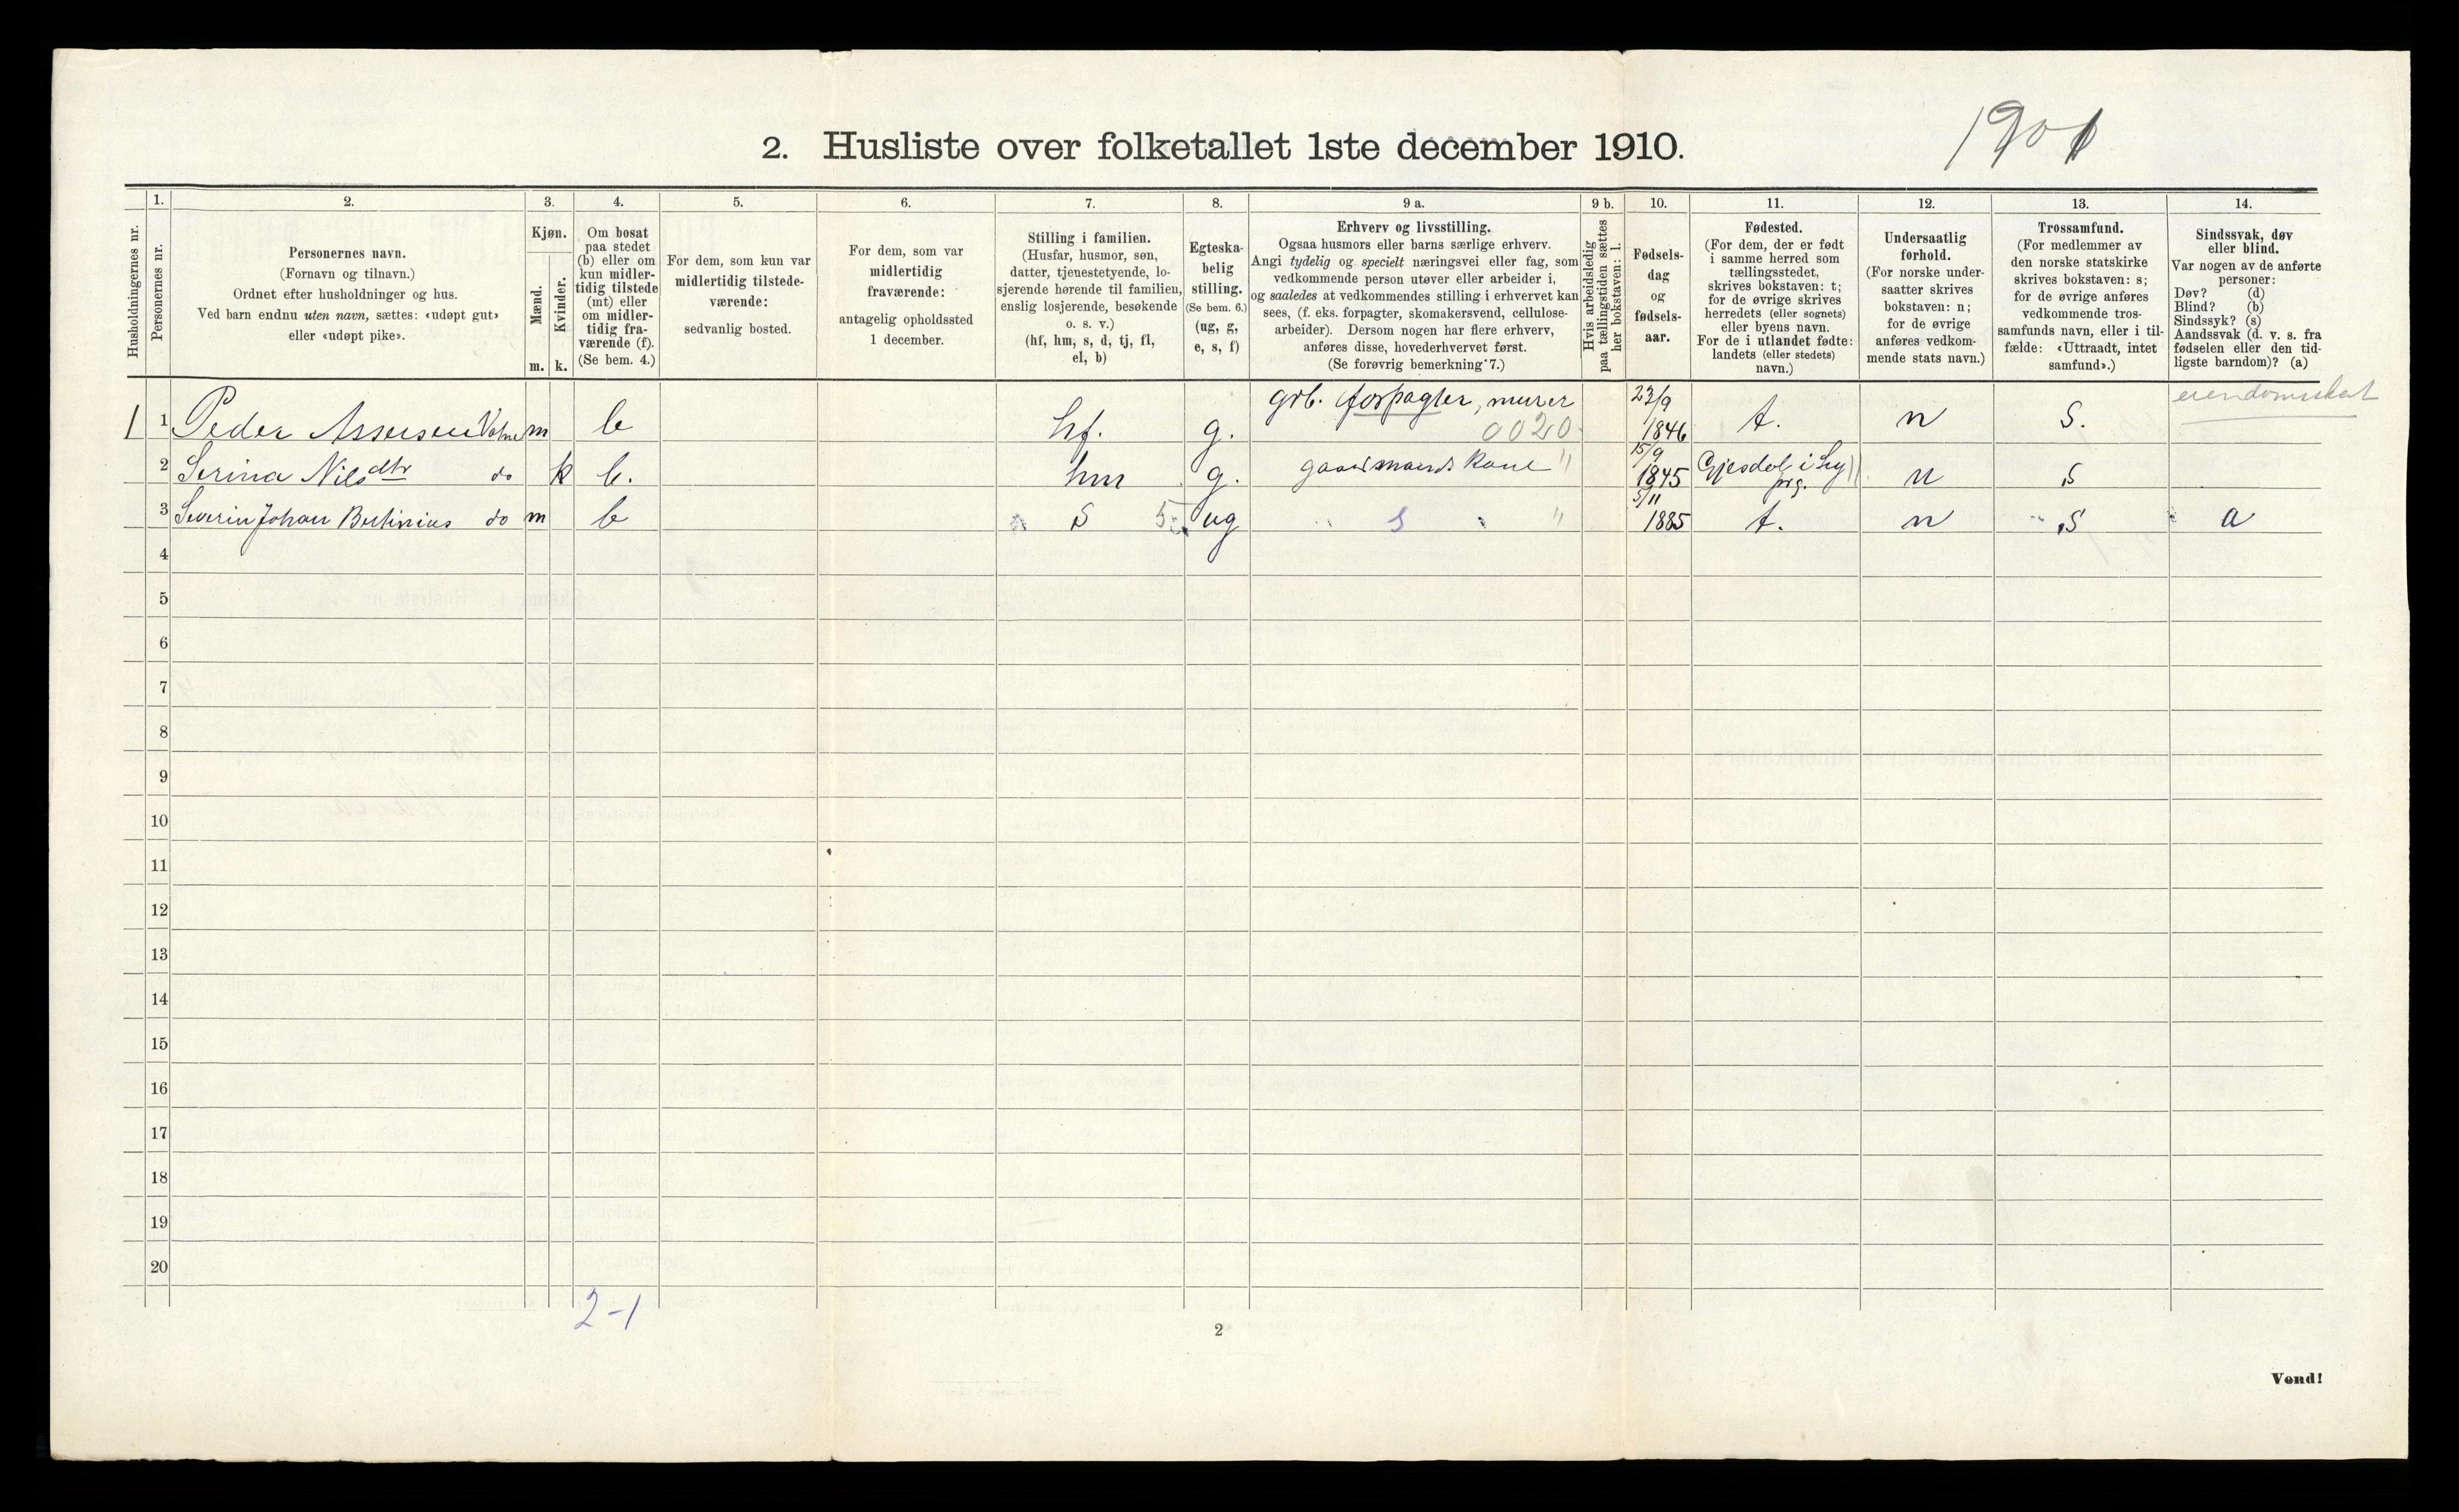 1901
2. Husliste over folketallet 1ste december 1910.
Husholdningernes nr.
1.
Personernes nr.
2.
Personernes navn.
(Fornavn og tilnavn.)
Ordnet efter husholdninger og hus.
Ved barn endnu uten navn, sættes: «udøpt gut»
eller «udøpt pike».
3.
Kjøn.
Mænd.
Kvinder.
m. k.
4.
Om bosat
paa stedet
(b) eller om
kun midler-
tidig tilstede
(mt) eller
om midler-
tidig fra-
værende (f).
(Se bem. 4.)
5.
For dem, som kun var
midlertidig tilstede-
værende:
sedvanlig bosted.
6.
For dem, som var
midlertidig
fraværende:
antagelig opholdssted
1 december.
7.
Stilling i familien.
(Husfar, husmor, søn,
datter, tjenestetyende, lo-
sjerende hørende til familien,
enslig losjerende, besøkende
o. s. v.)
(hf, hm, s, d, tj, fl,
el, b)
8.
Egteska-
belig
stilling.
(Se bem. 6.)
(ug, g,
e, s, f)
9 a.
Erhverv og livsstilling.
Ogsaa husmors eller barns særlige erhverv.
Angi tydelig og specielt næringsvei eller fag, som
vedkommende person utøver eller arbeider i,
og saaledes at vedkommendes stilling i erhvervet kan
sees, (f. eks. forpagter, skomakersvend, cellulose-
arbeider). Dersom nogen har flere erhverv,
anføres disse, hovederhvervet først.
(Se forøvrig bemerkning 7.)
9 b.
Hvis arbeidsledig
paa tællingstiden sættes
her bokstaven: l.
10.
Fødsels-
dag
og
fødsels-
aar.
11.
Fødested.
(For dem, der er født
i samme herred som
tællingsstedet,
skrives bokstaven: t;
for de øvrige skrives
herredets (eller sognets)
eller byens navn.
For de i utlandet fødte:
landets (eller stedets)
navn.)
12.
Undersaatlig
forhold.
(For norske under-
saatter skrives
bokstaven: n;
for de øvrige
anføres vedkom-
mende stats navn.)
13.
Trossamfund.
(For medlemmer av
den norske statskirke
skrives bokstaven: s;
for de øvrige anføres
vedkommende tros-
samfunds navn, eller i til-
fælde: «Uttraadt, intet
samfund».)
14.
Sindssvak, døv
eller blind.
Var nogen av de anførte
personer:
Døv? (d)
Blind? (b)
Sindssyk? (s)
Aandssvak (d. v. s. fra
fødselen eller den tid-
ligste barndom)? (a)
1 1 Peder Assersen m b hf. g. grb. forpagter, murer 0020 23/9 1846 t. n S. eiendomsskat
2 Serina Nilsdtr do k b. hm g. gaardmands kone " 15/9 1845 Gjesdal i Ly prg. n S
3 Severin Johan Bertinius do m b S 5 ug S " 5/11 1885 t. n S a
4
5
6
7
8
9
10
11
12
13
14
15
16
17
18
19
20
2-1
2
Vend!